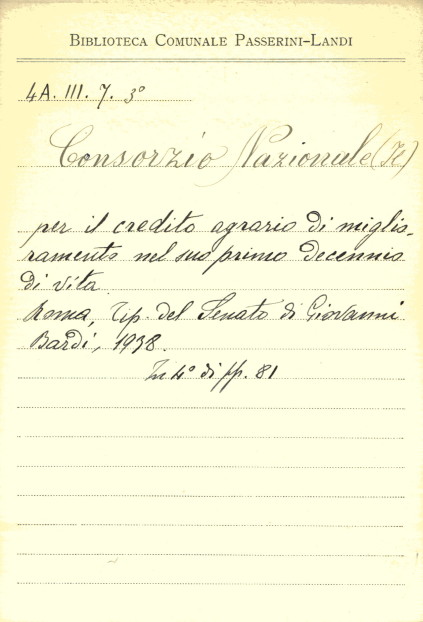 BIBLIOTECA COMUNALE PASSERINI-LANDI
4A. III. 7. 3°
Consorzio Nazionale (Il)
per il credito agrario di miglio-
ramento nel suo primo decennio
di vita.
Roma, Tip. del Senato di Giovanni
Bardi, 1938.
In 4° di pp. 81